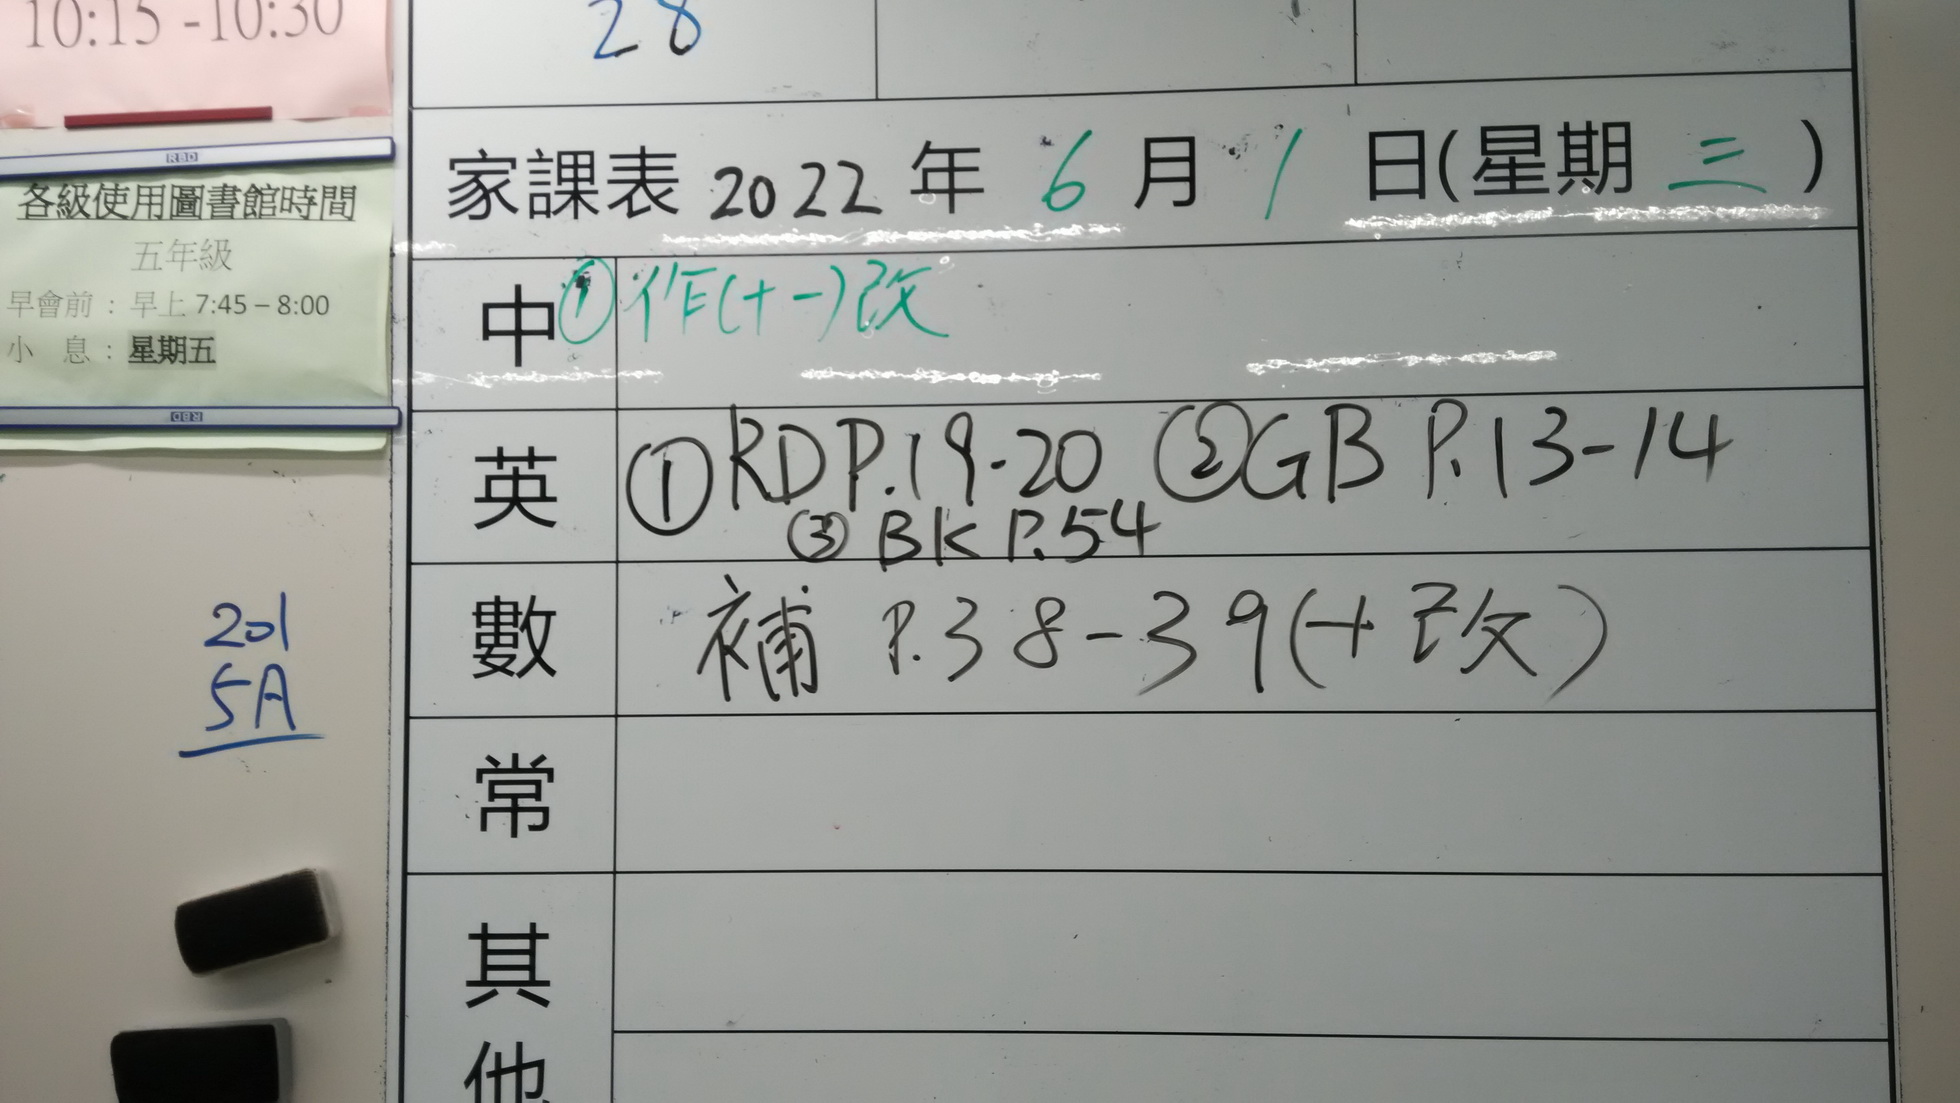 10:15 -10:30
RBD
各級使用圖書館時間
五年級
早會前：早上 7:45 – 8:00
小 息：星期五
RBD
201
5A
28
家課表 2022 年 6 月 1 日(星期 三 )
中 ①作(十一)改
英 ①RD P.19-20 ②GB P.13-14
③ BK P.54
數 補 P.38-39(+改)
常
其
他